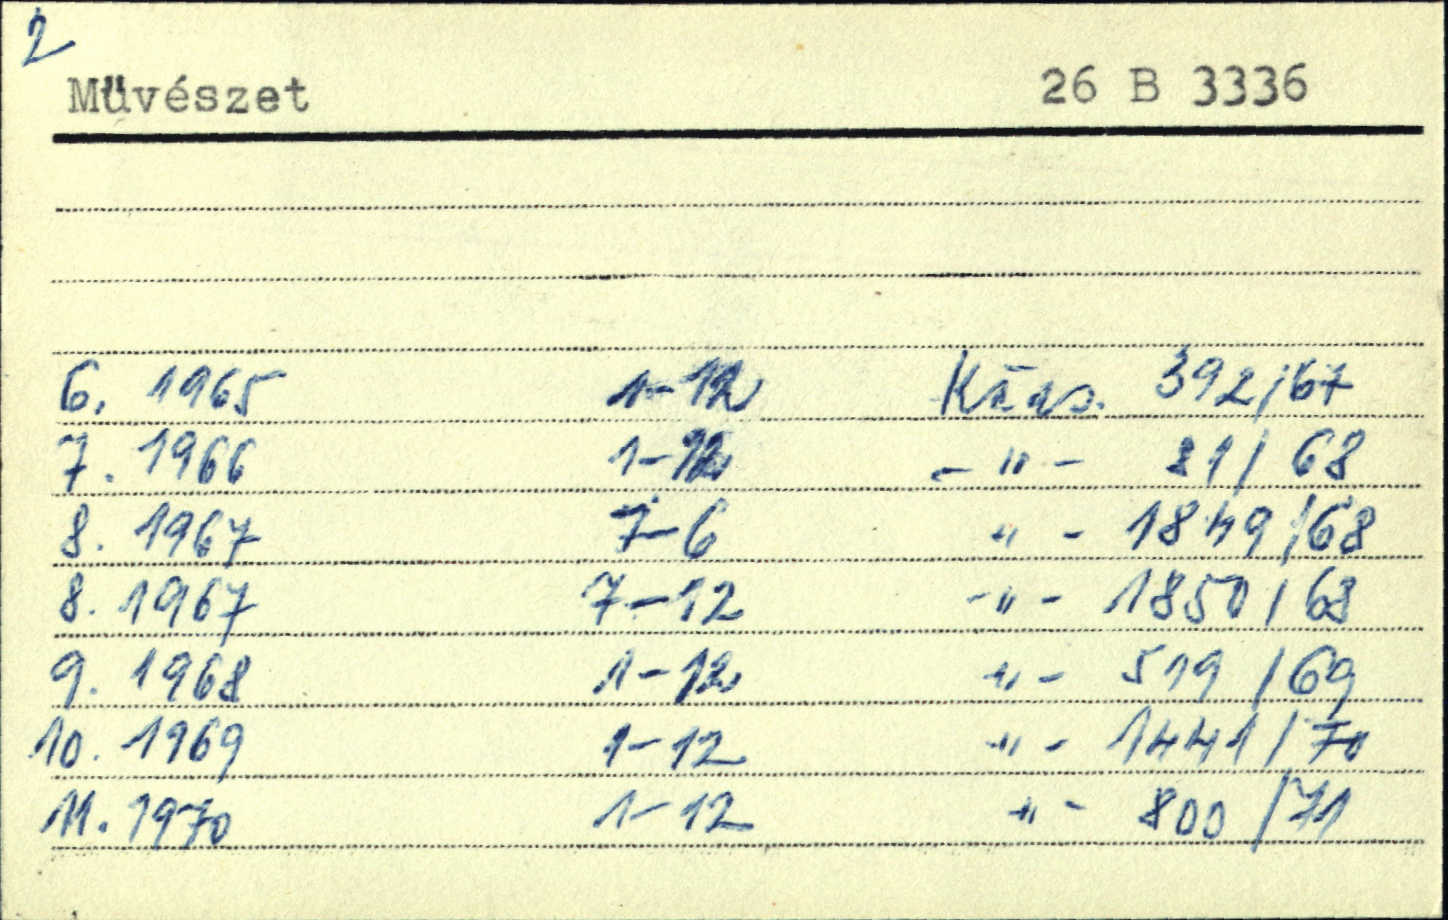 2
Müvészet 26 B 3336
6. 1965 1-12 392/67
7. 1966 1-12 - " - 81/68
8. 1967 7-6 " - 1849/68
8. 1967 7-12 - " - 1850/68
9. 1968 1-12 " - 519/69
10. 1969 1-12 " - 1441/70
11. 1970 1-12 " - 800/71